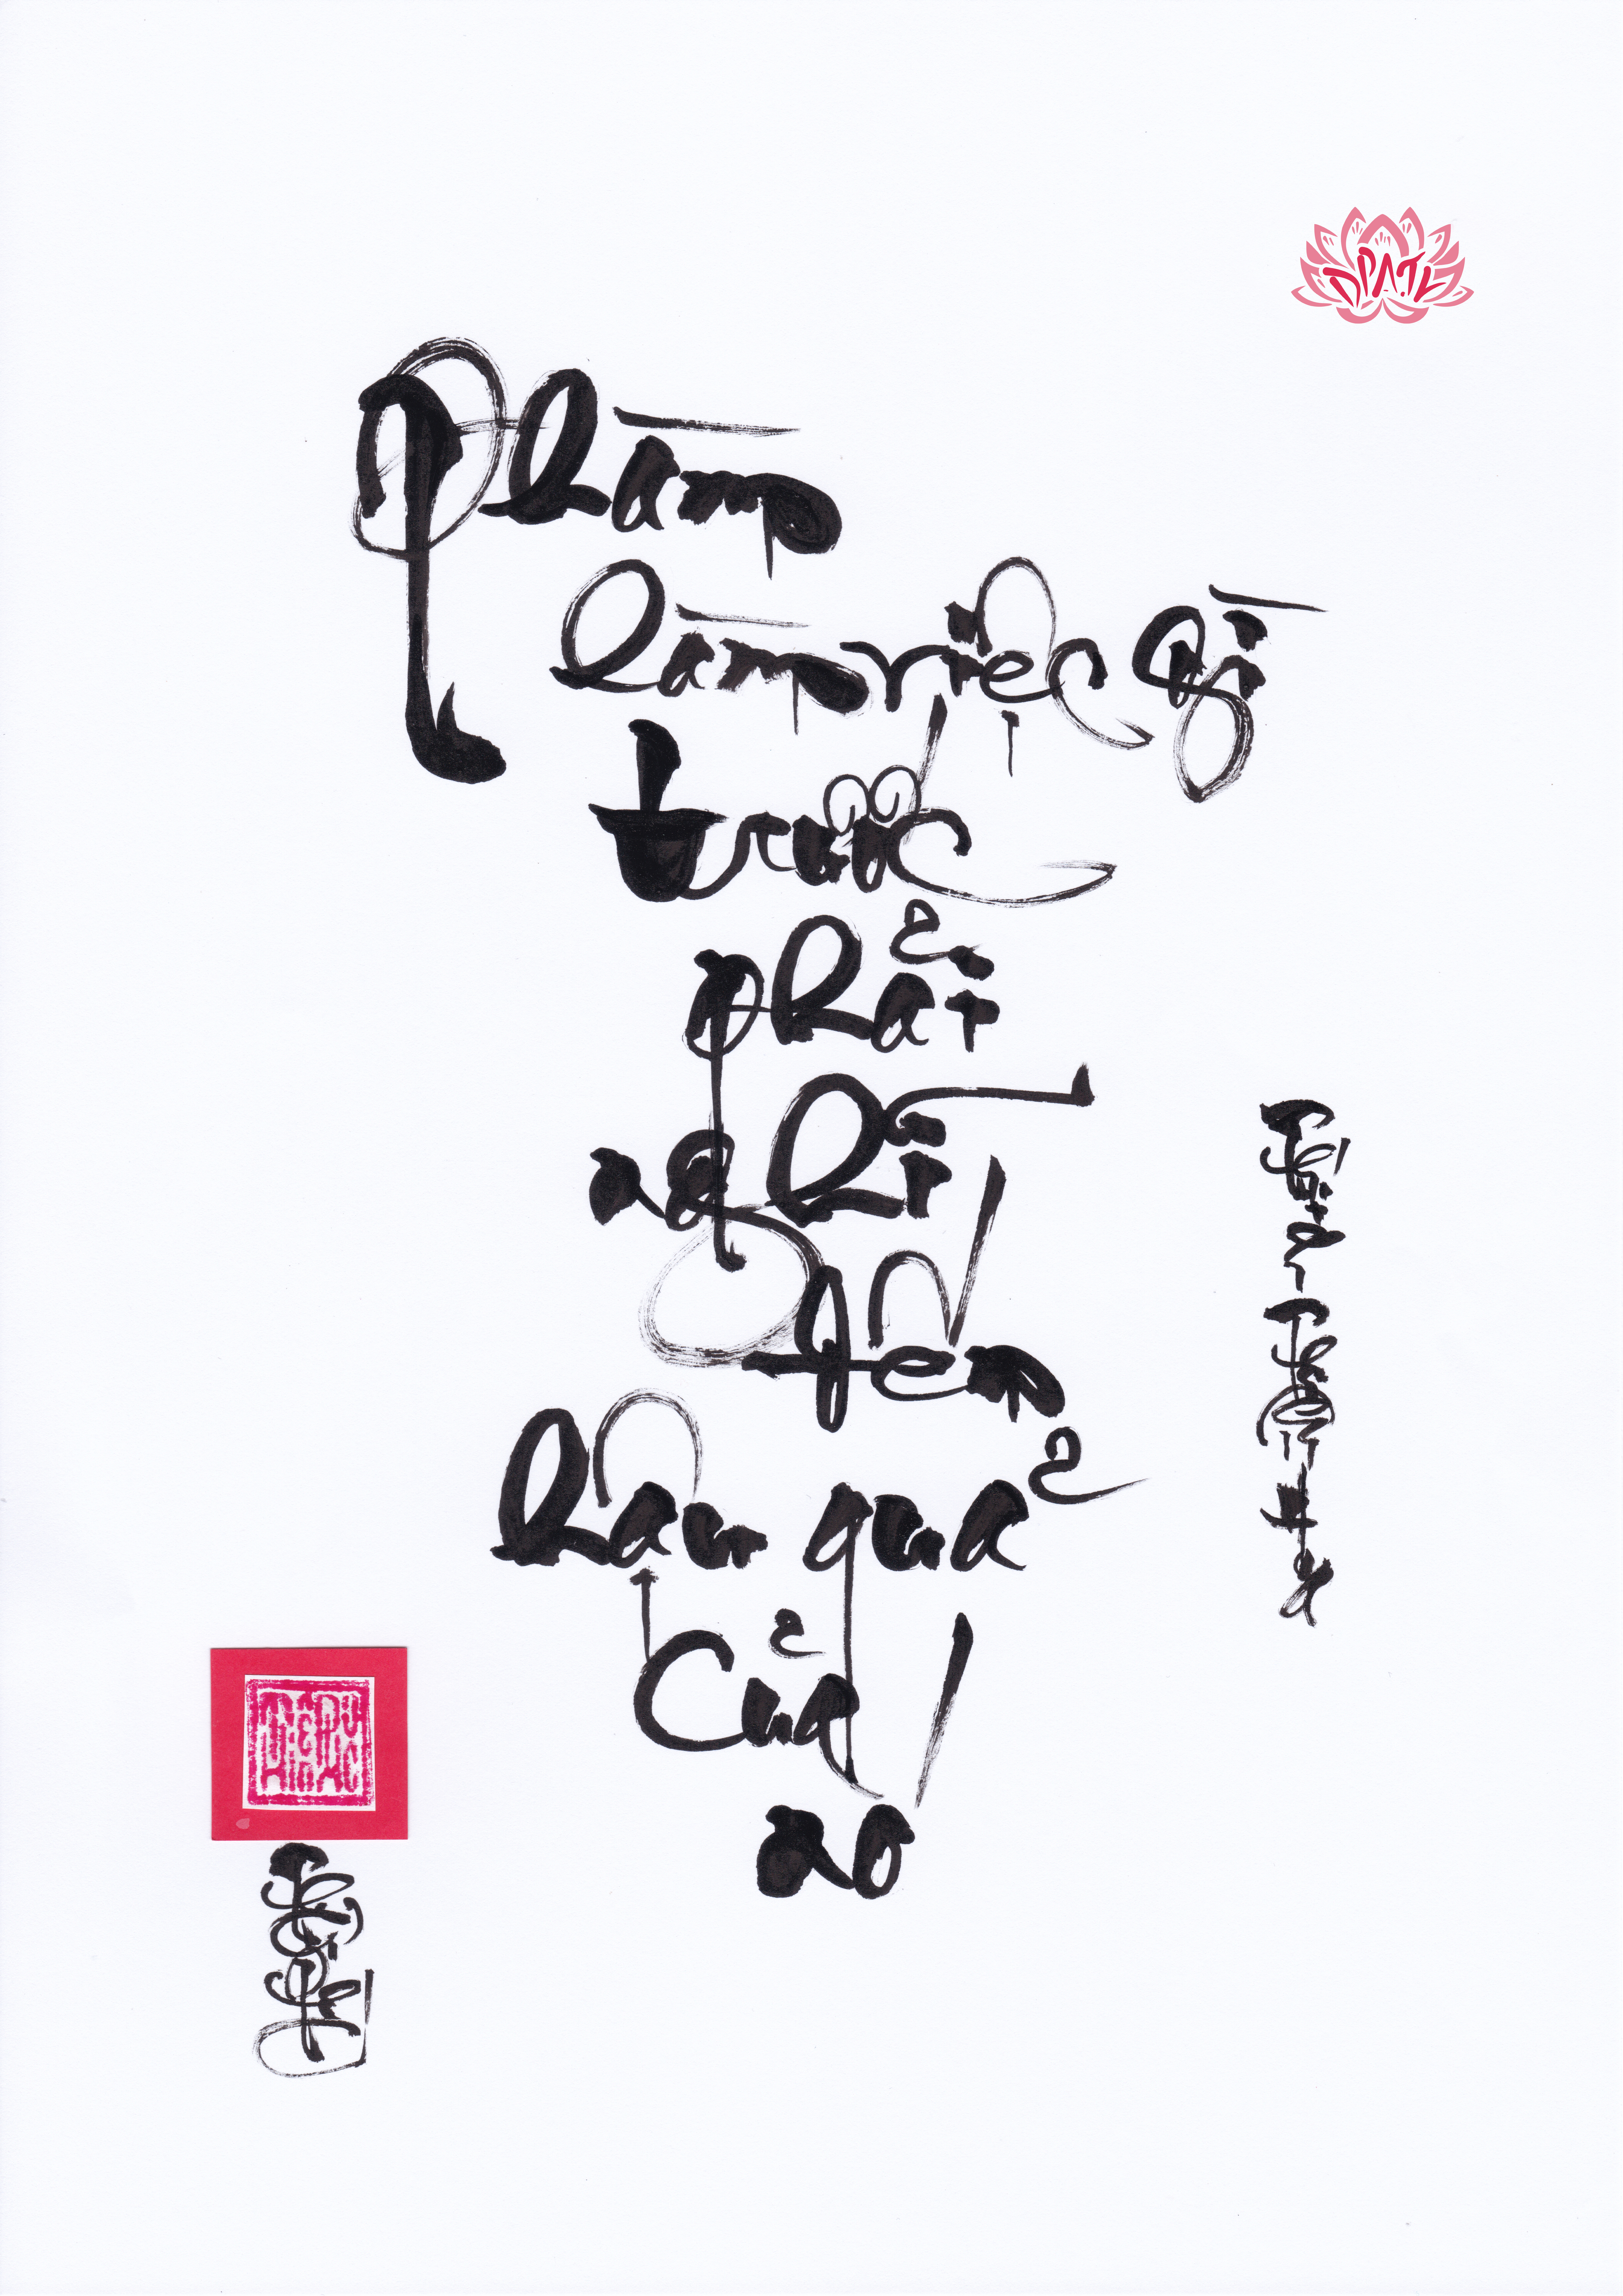 DPATL
Phàm
làm việc gì
trước
phải
nghĩ
đến
hậu quả
của
nó